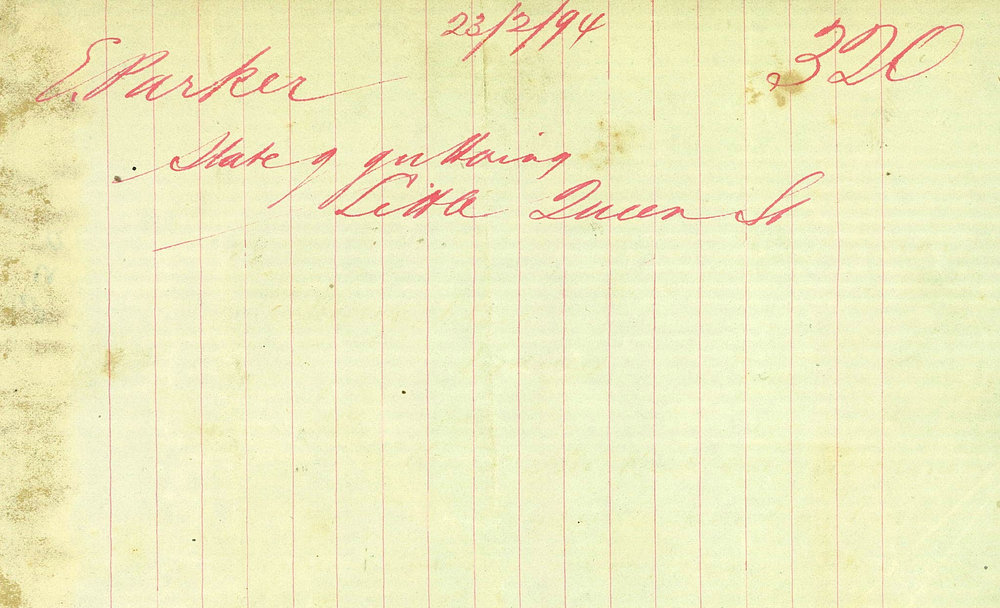 23/2/94
E. Parker
320
State of guttering
Little Queen St